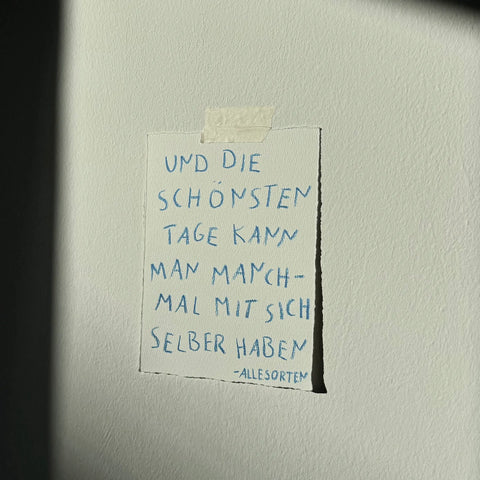 UND DIE
SCHÖNSTEN
TAGE KANN
MAN MANCH-
MAL MIT SICH
SELBER HABEN
-ALLESORTEN